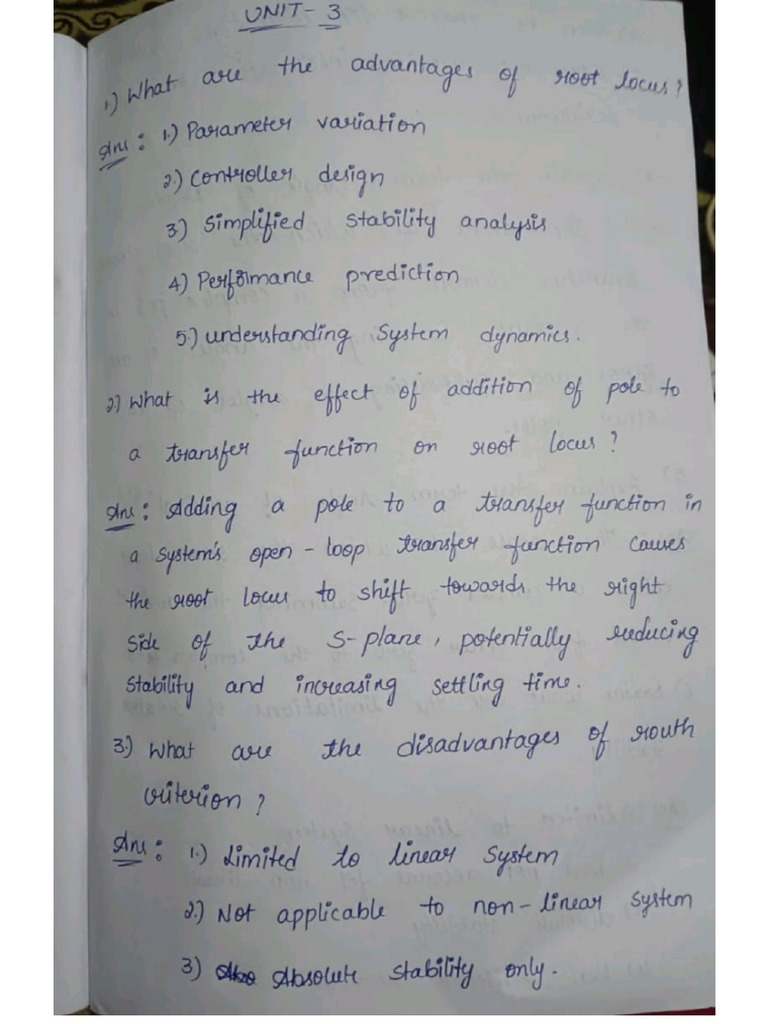 UNIT-3
1.) What are the advantages of root locus?
Ans: 1.) Parameter variation
2.) Controller design
3) Simplified stability analysis
4) Performance prediction
5.) understanding system dynamics.
2.) What is the effect of addition of pole to
a transfer function on root locus?
Ans: Adding a pole to a transfer function in
a system's open-loop transfer function causes
the root locus to shift towards the right
side of the S-plane, potentially reducing
stability and increasing settling time.
3.) What are the disadvantages of routh
criterion?
Ans: 1.) Limited to linear system
2.) Not applicable to non-linear system
3) Absolute stability only.